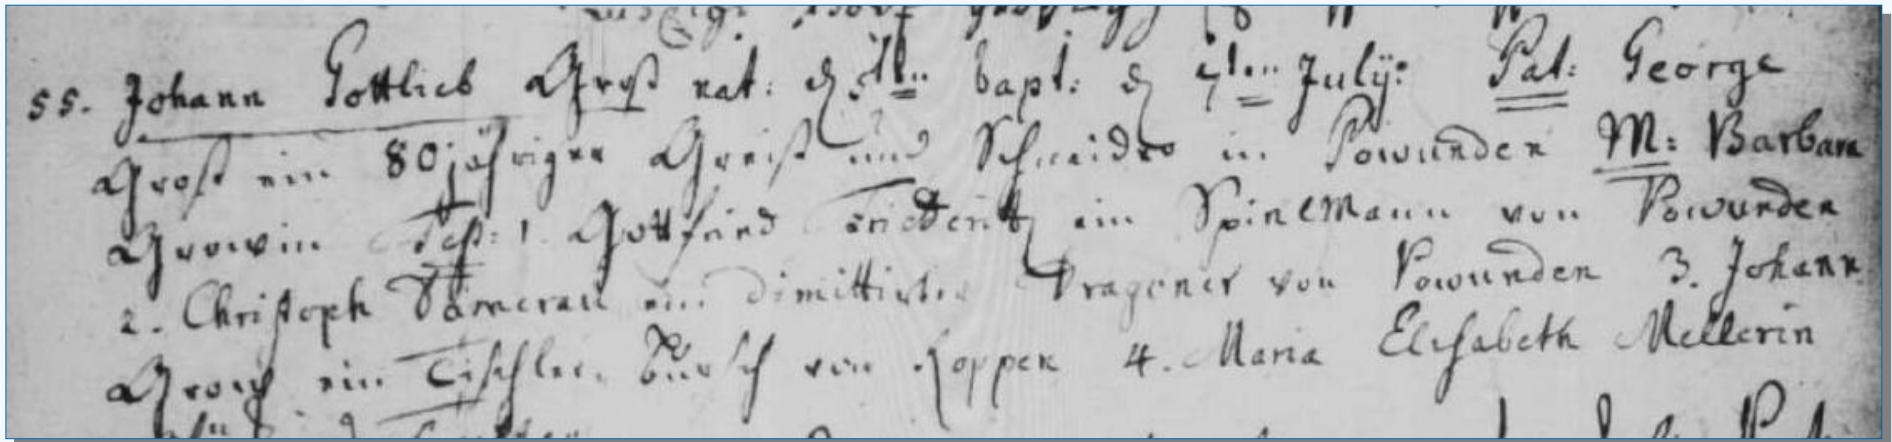 55. Johann Gottlieb Groß nat: d. 1ten bapt: d. 7ten Julÿ: Pat: George
Groß ein 80jähriger Greiß und Schneider in Powunden M: Barbara
Test: 1. Gottfried Friederitz ein Spielmann von Powunden
2. Christoph Damerau ein dimittirter Dragoner von Powunden 3. Johann
ein Tischler Bursch von 4. Maria Elisabeth Mellerin